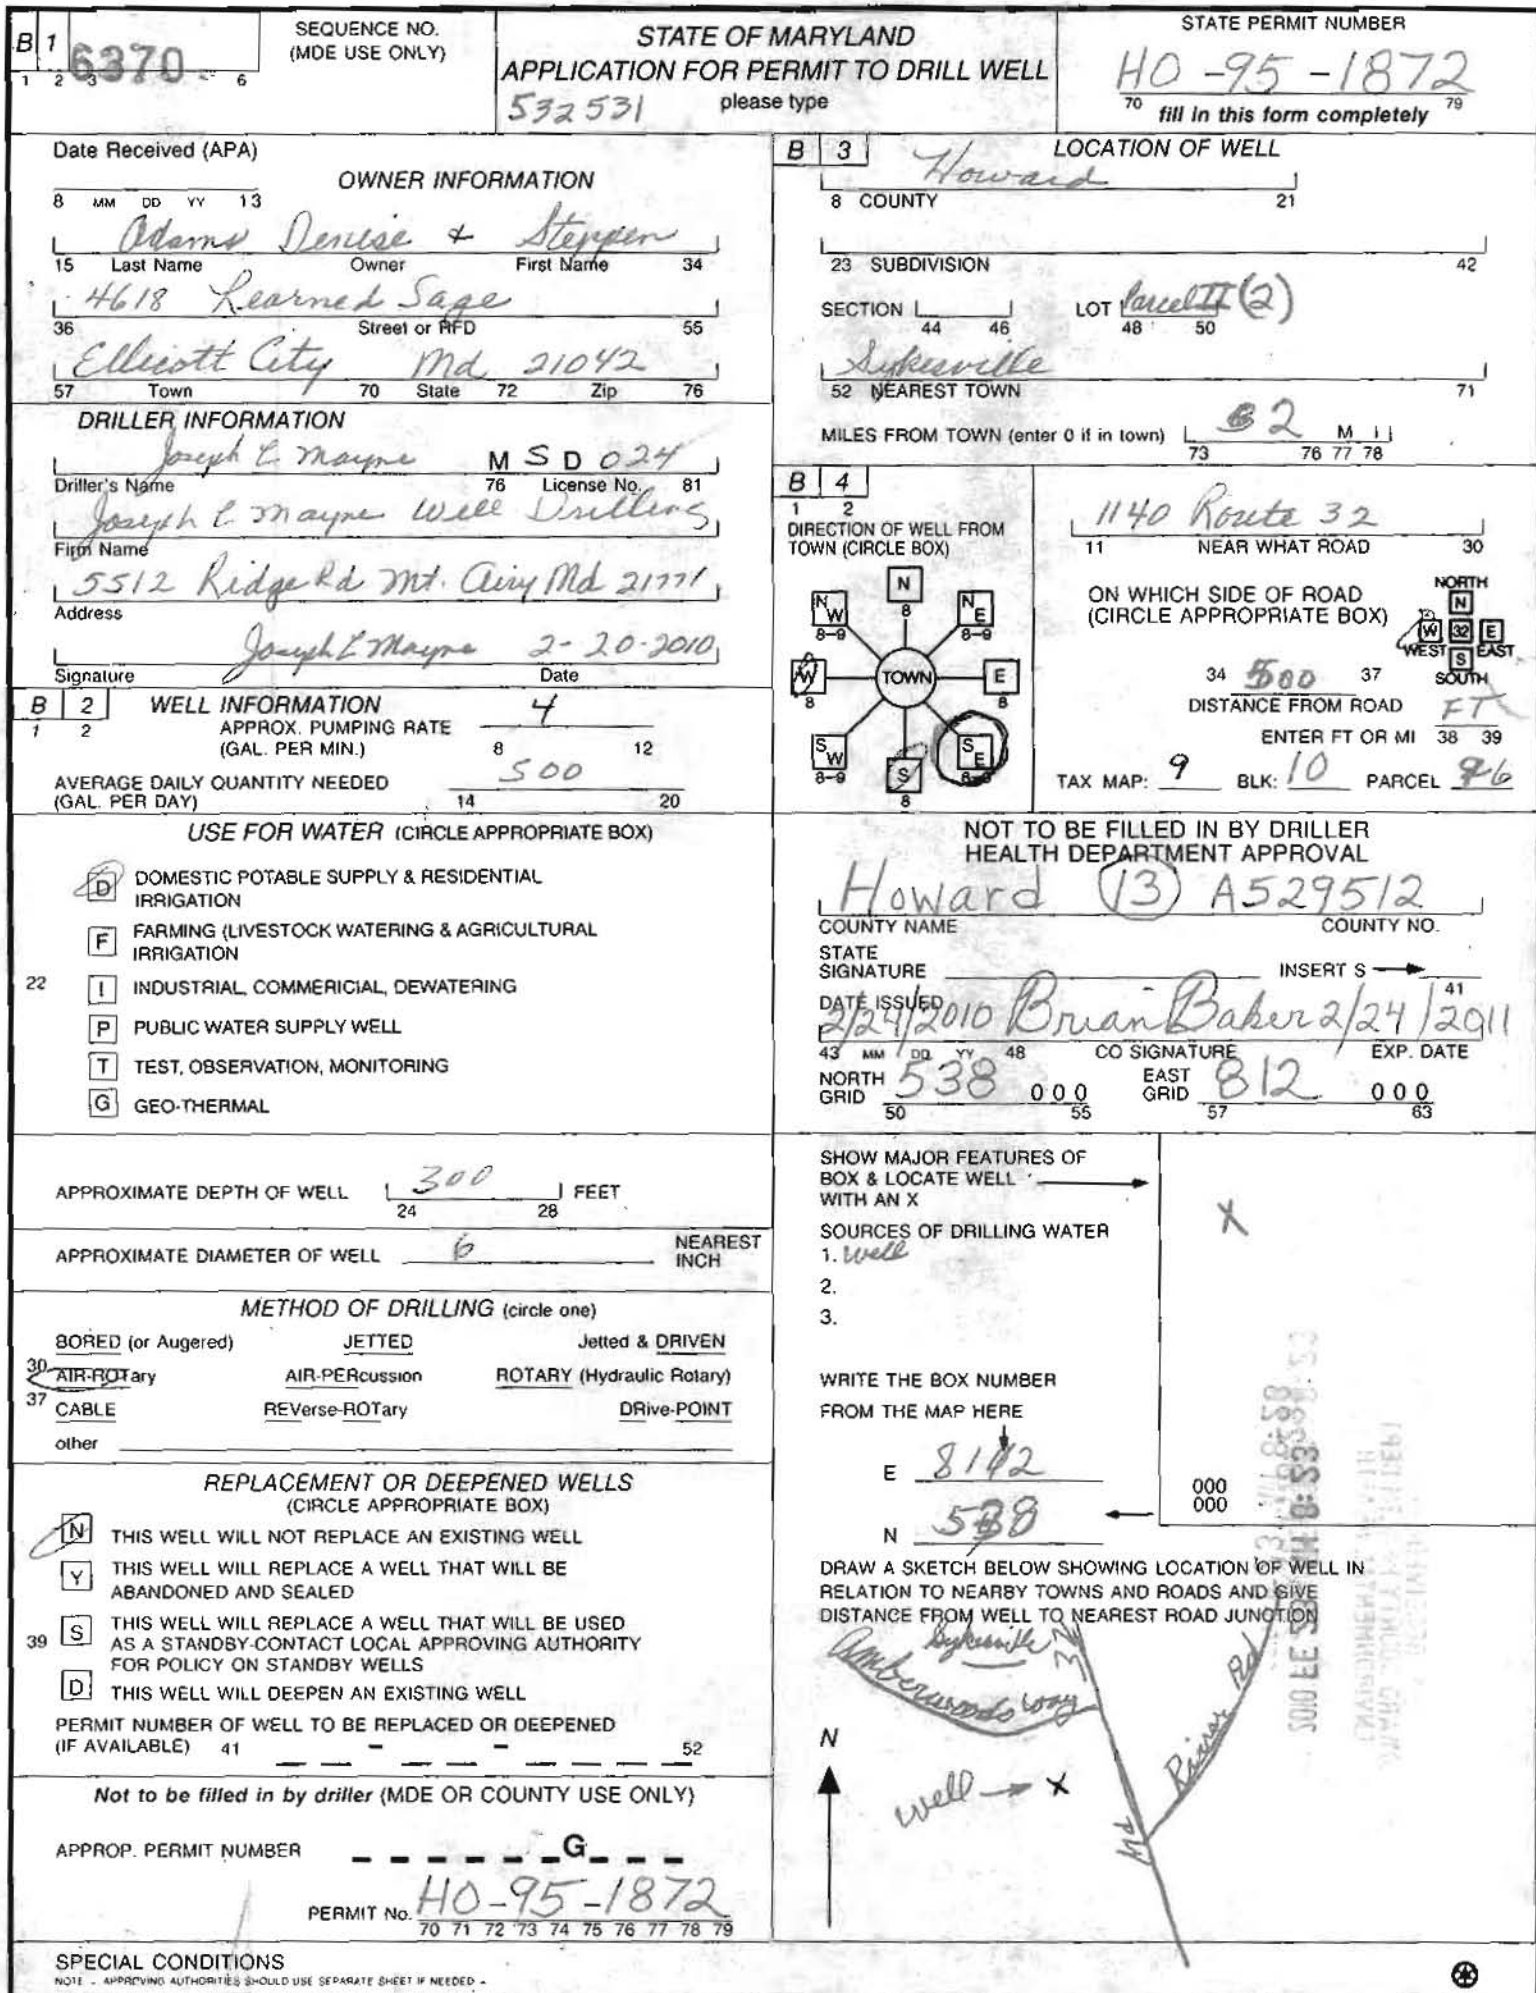 B 1
6370
1 2 3 6
SEQUENCE NO.
(MDE USE ONLY)
STATE OF MARYLAND
APPLICATION FOR PERMIT TO DRILL WELL
532531 please type
STATE PERMIT NUMBER
HO-95-1872
70 79
fill in this form completely
Date Received (APA)
8 MM DD YY 13
OWNER INFORMATION
Adams Denise + Steppen
15 Last Name Owner First Name 34
4618 Learned Sage
36 Street or RFD 55
Ellicott City Md 21042
57 Town 70 State 72 Zip 76
DRILLER INFORMATION
Joseph L Mayne M S D 024
Driller's Name 76 License No. 81
Joseph L Mayne Well Drilling
Firm Name
5512 Ridge Rd Mt. Airy Md 21771
Address
Joseph L Mayne 2-20-2010
Signature Date
B 2
1 2
WELL INFORMATION
APPROX. PUMPING RATE
(GAL. PER MIN.)
4
8 12
AVERAGE DAILY QUANTITY NEEDED
(GAL. PER DAY)
500
14 20
USE FOR WATER (CIRCLE APPROPRIATE BOX)
D DOMESTIC POTABLE SUPPLY & RESIDENTIAL
IRRIGATION
F FARMING (LIVESTOCK WATERING & AGRICULTURAL
IRRIGATION
22
I INDUSTRIAL, COMMERICIAL, DEWATERING
P PUBLIC WATER SUPPLY WELL
T TEST, OBSERVATION, MONITORING
G GEO-THERMAL
APPROXIMATE DEPTH OF WELL 300 FEET
24 28
APPROXIMATE DIAMETER OF WELL 6 NEAREST
INCH
METHOD OF DRILLING (circle one)
BORED (or Augered) JETTED Jetted & DRIVEN
30 AIR-ROTary AIR-PERcussion ROTARY (Hydraulic Rotary)
37 CABLE REVerse-ROTary DRive-POINT
other
REPLACEMENT OR DEEPENED WELLS
(CIRCLE APPROPRIATE BOX)
N THIS WELL WILL NOT REPLACE AN EXISTING WELL
Y THIS WELL WILL REPLACE A WELL THAT WILL BE
ABANDONED AND SEALED
39 S THIS WELL WILL REPLACE A WELL THAT WILL BE USED
AS A STANDBY-CONTACT LOCAL APPROVING AUTHORITY
FOR POLICY ON STANDBY WELLS
D THIS WELL WILL DEEPEN AN EXISTING WELL
PERMIT NUMBER OF WELL TO BE REPLACED OR DEEPENED
(IF AVAILABLE) 41 - - 52
Not to be filled in by driller (MDE OR COUNTY USE ONLY)
APPROP. PERMIT NUMBER G
PERMIT No. HO-95-1872
70 71 72 73 74 75 76 77 78 79
SPECIAL CONDITIONS
NOTE - APPROVING AUTHORITIES SHOULD USE SEPARATE SHEET IF NEEDED -
B 3
LOCATION OF WELL
Howard
8 COUNTY 21
23 SUBDIVISION 42
SECTION LOT Parcel II (2)
44 46 48 50
Sykesville
52 NEAREST TOWN 71
MILES FROM TOWN (enter 0 if in town) 2 M I
73 76 77 78
B 4
1 2
DIRECTION OF WELL FROM
TOWN (CIRCLE BOX)
N
8
NW
8-9
NE
8-9
W
8
TOWN
E
8
SW
8-9
S
8
SE
8-9
1140 Route 32
11 NEAR WHAT ROAD 30
ON WHICH SIDE OF ROAD
(CIRCLE APPROPRIATE BOX)
NORTH
N
W 32 E
WEST EAST
S
SOUTH
34 500 37
DISTANCE FROM ROAD
FT
ENTER FT OR MI 38 39
TAX MAP: 9 BLK: 10 PARCEL 96
NOT TO BE FILLED IN BY DRILLER
HEALTH DEPARTMENT APPROVAL
Howard (13) A529512
COUNTY NAME COUNTY NO.
STATE
SIGNATURE INSERT S
41
DATE ISSUED
2/24/2010 Brian Baker 2/24/2011
43 MM DD YY 48 CO SIGNATURE EXP. DATE
NORTH
GRID 538 000
50 55
EAST
GRID 812 000
57 63
SHOW MAJOR FEATURES OF
BOX & LOCATE WELL
WITH AN X
X
SOURCES OF DRILLING WATER
1. well
2.
3.
WRITE THE BOX NUMBER
FROM THE MAP HERE
E 812
N 538
000
000
DRAW A SKETCH BELOW SHOWING LOCATION OF WELL IN
RELATION TO NEARBY TOWNS AND ROADS AND GIVE
DISTANCE FROM WELL TO NEAREST ROAD JUNCTION
Sykesville
Amberwoods Way
Md 32
Rd
N
well → X